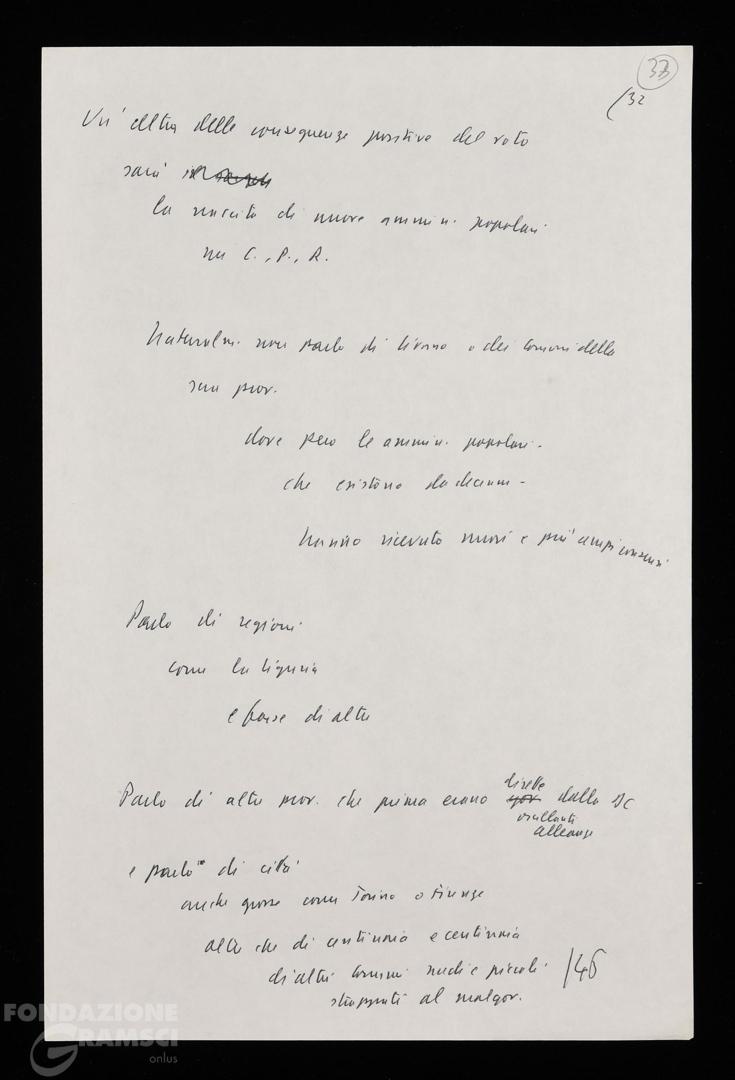 33
32
Un'altra delle conseguenze positive del voto
sarà il
la nascita di nuove ammin. popolari
nei C., P., R.
Naturalm. non parlo di Livorno o dei comuni della
sua prov.
dove però le ammin. popolari -
che esistono da decenni -
hanno ricevuto nuovi e più ampi consensi
Parlo di regioni
come la Liguria
e forse di altre
Parlo di altre prov. che prima erano dirette dalla DC
oscillanti
alleanze
e parlo di città
anche grosse come Torino o Firenze
oltre che di centinaia e centinaia
di altri comuni medi e piccoli /46
strappati al malgov.
FONDAZIONE
GRAMSCI
onlus